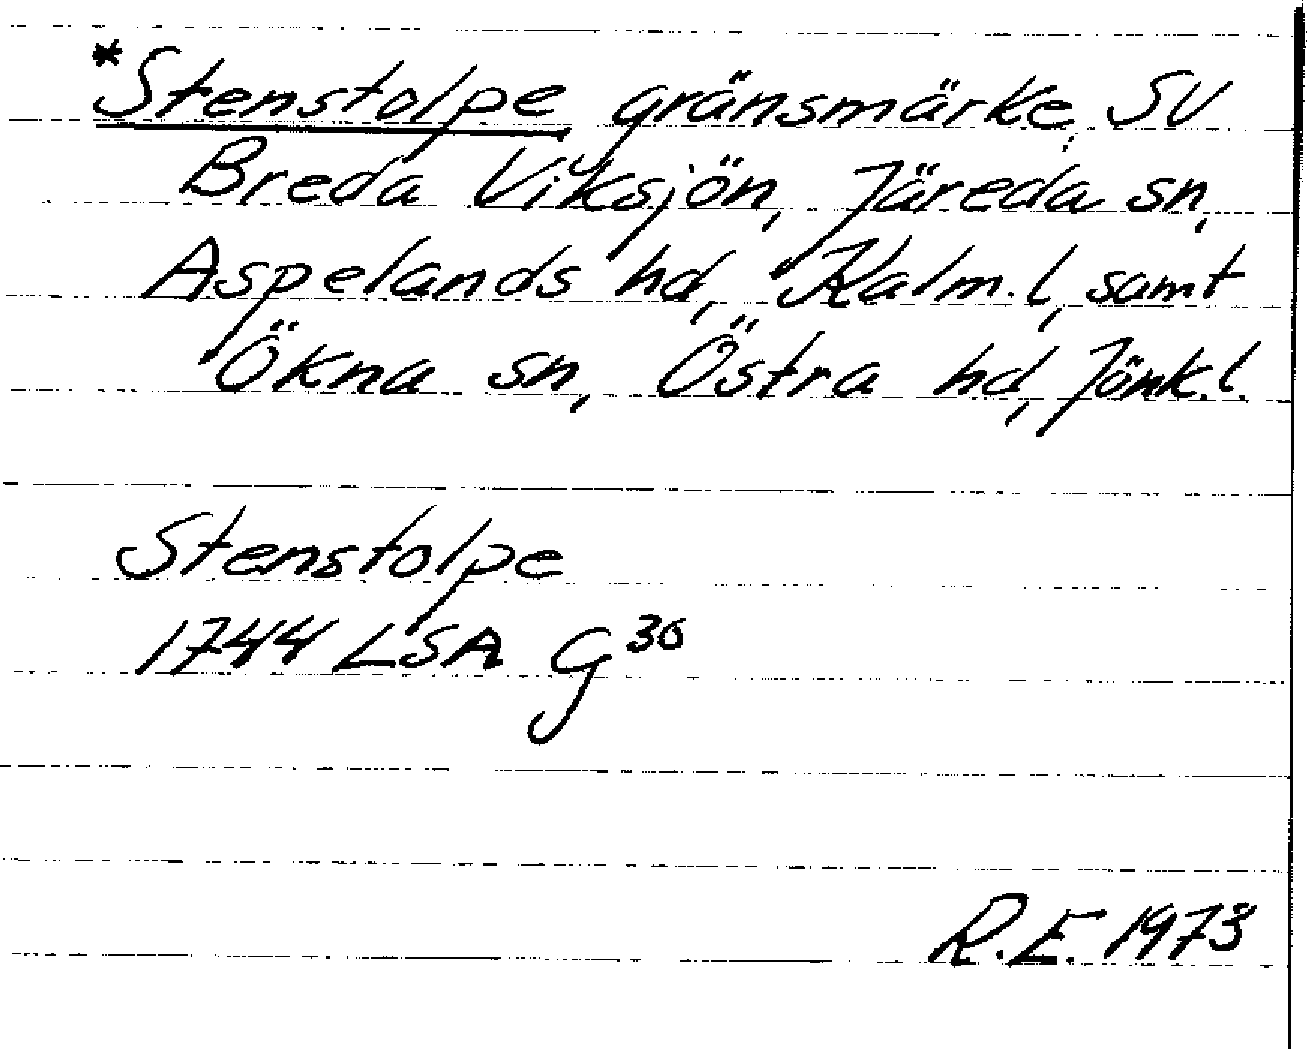 *Stenstolpe gränsmärke, SV
Breda Viksjön, Järeda sn,
Aspelands hd, Kalm.l, samt
Ökna sn, Östra hd, Jönk.l.
Stenstolpe
1744 LSA G 30
R.E. 1973